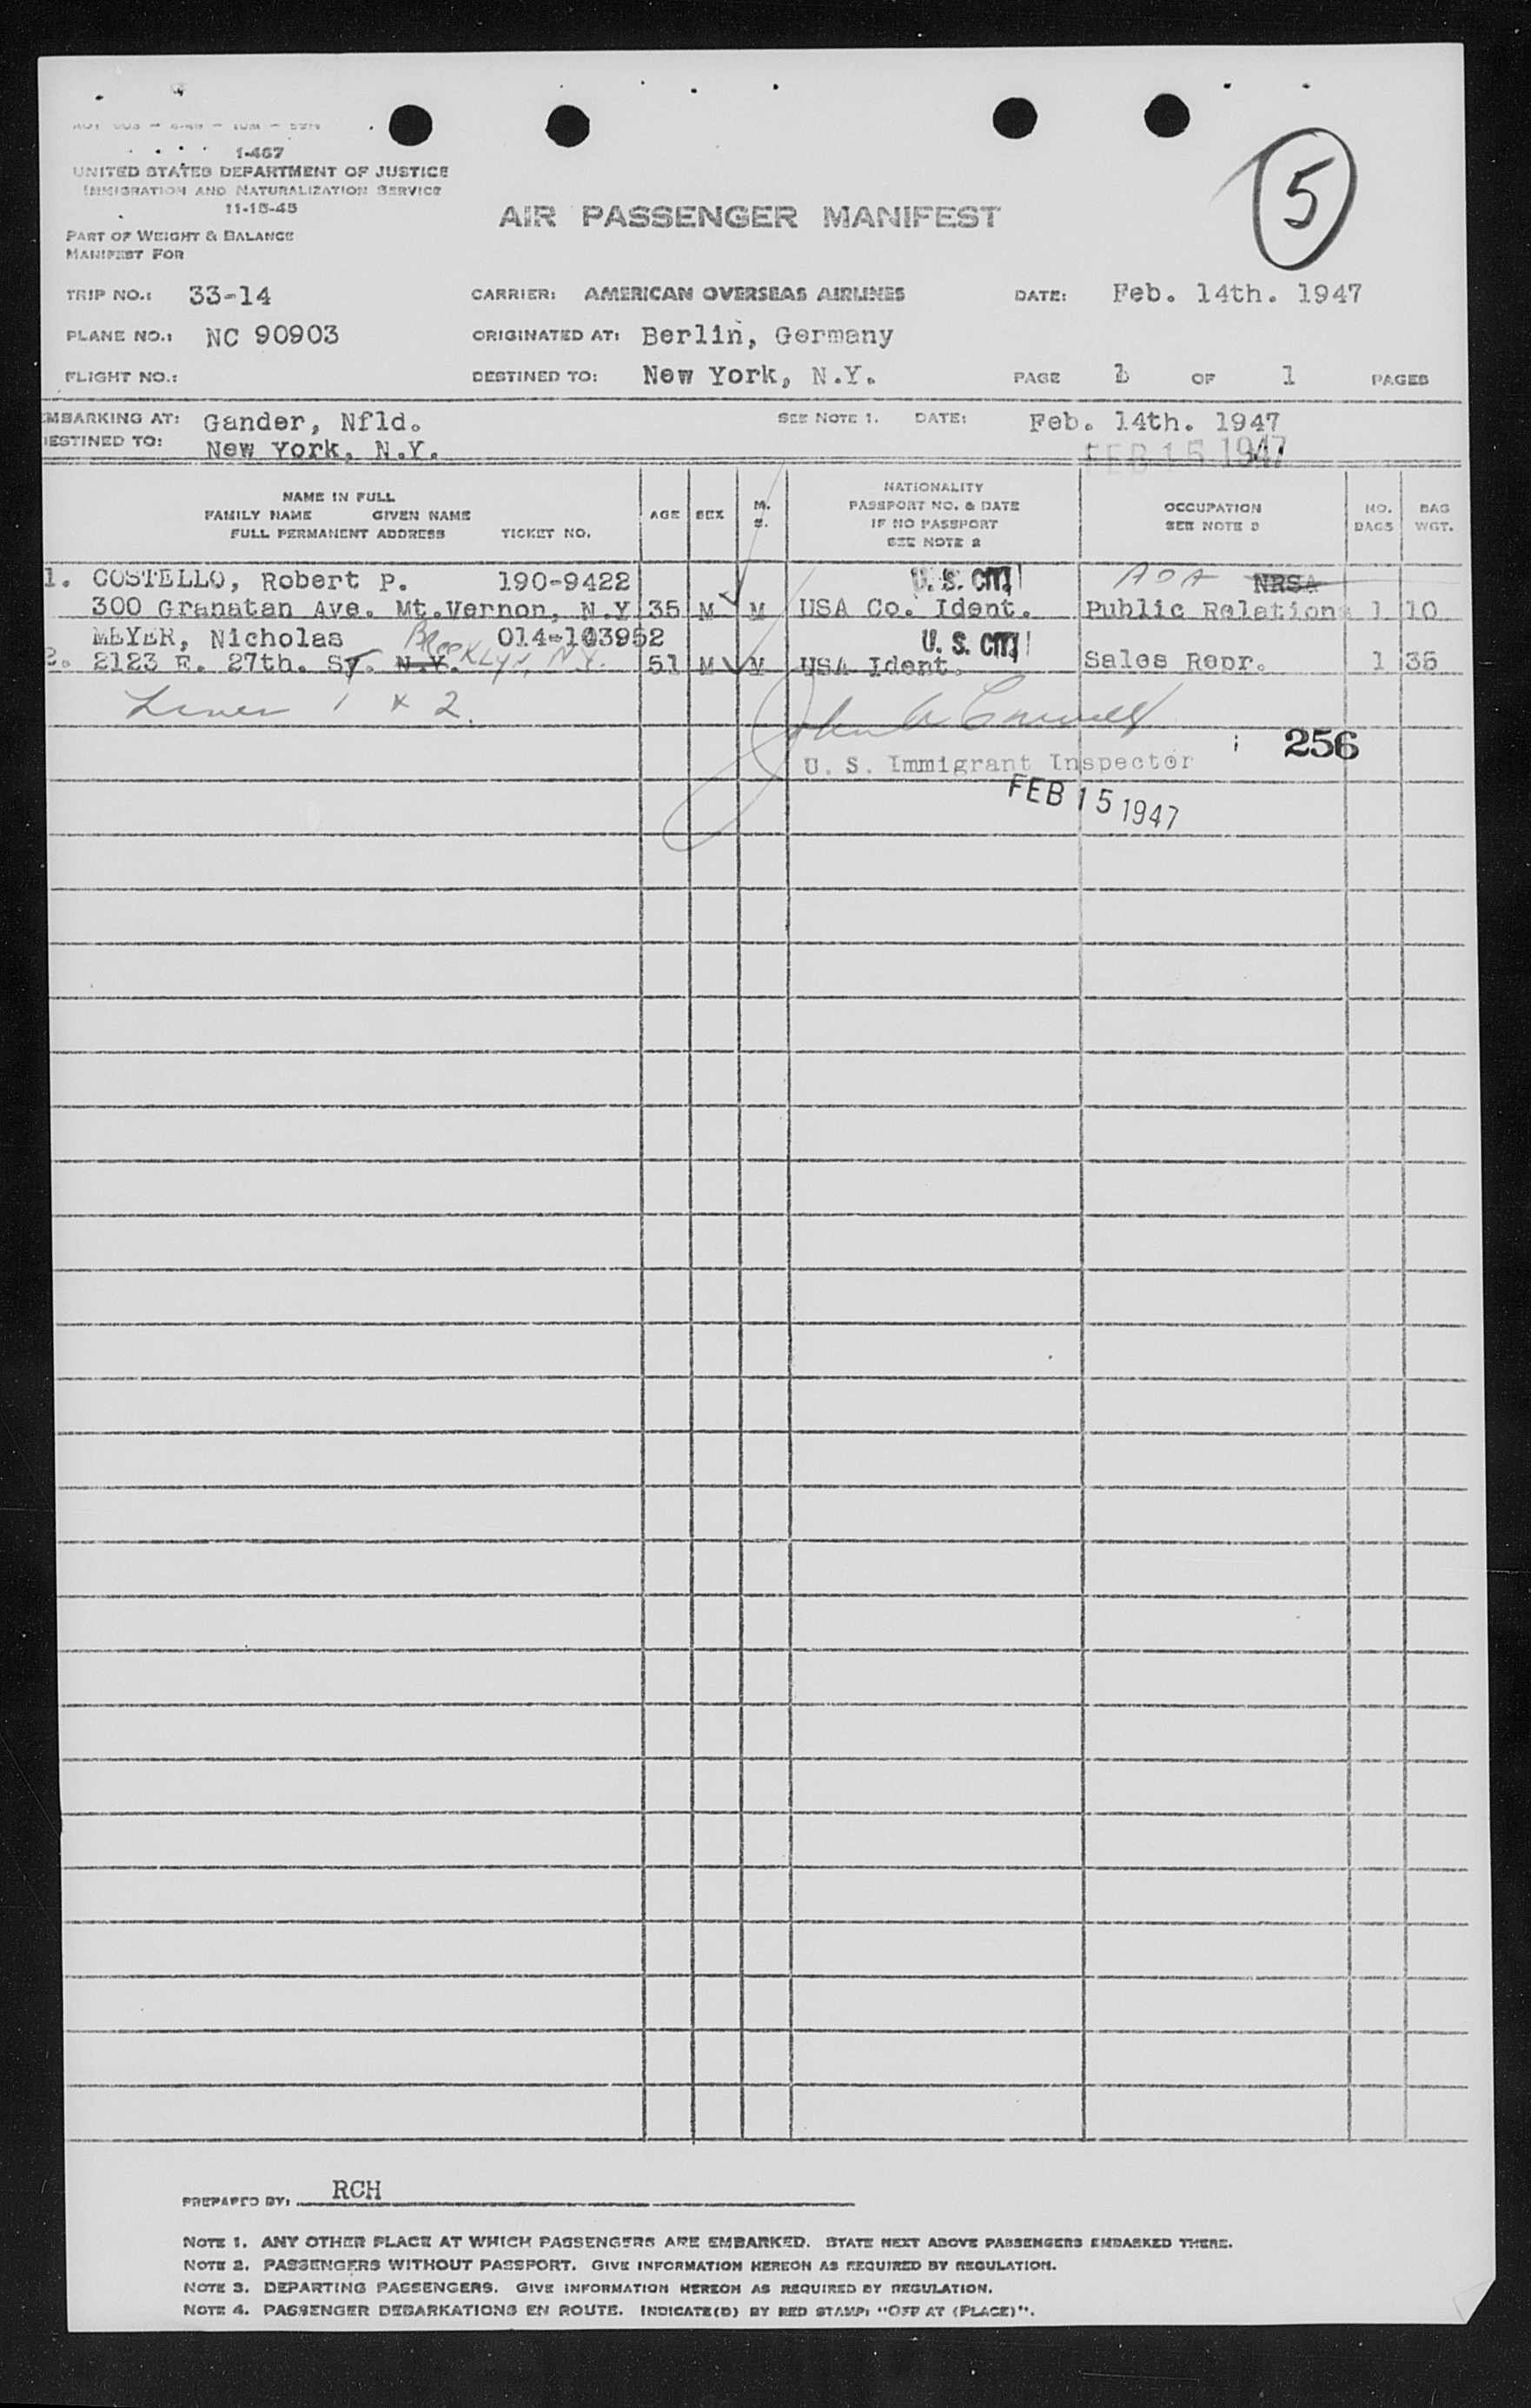 1-467
UNITED STATES DEPARTMENT OF JUSTICE
IMMIGRATION AND NATURALIZATION SERVICE
11-15-45
AIR PASSENGER MANIFEST
5
PART OF WEIGHT & BALANCE
MANIFEST FOR
TRIP NO.: 33-14 CARRIER: AMERICAN OVERSEAS AIRLINES DATE: Feb. 14th. 1947
PLANE NO.: NC 90903 ORIGINATED AT: Berlin, Germany
FLIGHT NO.: DESTINED TO: New York, N.Y. PAGE 1 OF 1 PAGES
EMBARKING AT: Gander, Nfld. SEE NOTE 1. DATE: Feb. 14th. 1947
DESTINED TO: New York, N.Y. FEB 15 1947
NAME IN FULL
FAMILY NAME GIVEN NAME
FULL PERMANENT ADDRESS TICKET NO. AGE SEX M. S. NATIONALITY PASSPORT NO. & DATE IF NO PASSPORT SEE NOTE 2 OCCUPATION SEE NOTE 3 NO. BAGS BAG WGT.
1. COSTELLO, Robert P. 190-9422 U. S. CIT. AOA NRSA
300 Granatan Ave. Mt.Vernon, N.Y 35 M M USA Co. Ident. Public Relations 1 10
MEYER, Nicholas 014-103952 U. S. CIT.
2. 2123 E. 27th. ST. N.Y. BRooKLyn, N.Y. 51 M M USA Ident. Sales Repr. 1 35
1 & 2.
256
U. S. Immigrant Inspector
FEB 15 1947
PREPARED BY: RCH
NOTE 1. ANY OTHER PLACE AT WHICH PASSENGERS ARE EMBARKED. STATE NEXT ABOVE PASSENGERS EMBARKED THERE.
NOTE 2. PASSENGERS WITHOUT PASSPORT. GIVE INFORMATION HEREON AS REQUIRED BY REGULATION.
NOTE 3. DEPARTING PASSENGERS. GIVE INFORMATION HEREON AS REQUIRED BY REGULATION.
NOTE 4. PASSENGER DEBARKATIONS EN ROUTE. INDICATE(D) BY RED STAMP: "OFF AT (PLACE)".